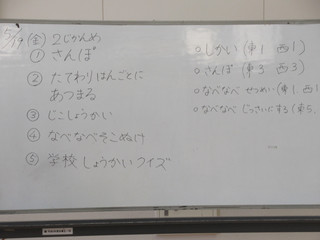 5/19 (金) 2じかんめ
① さんぽ
② たてわりはんごとに
あつまる
③ じこしょうかい
④ なべなべそこぬけ
⑤ 学校しょうかいクイズ
○しかい (東1 西1)
○さんぽ (東3 西3)
○なべなべ せつめい (東1. 西1
○なべなべ じっさいにする (東5.